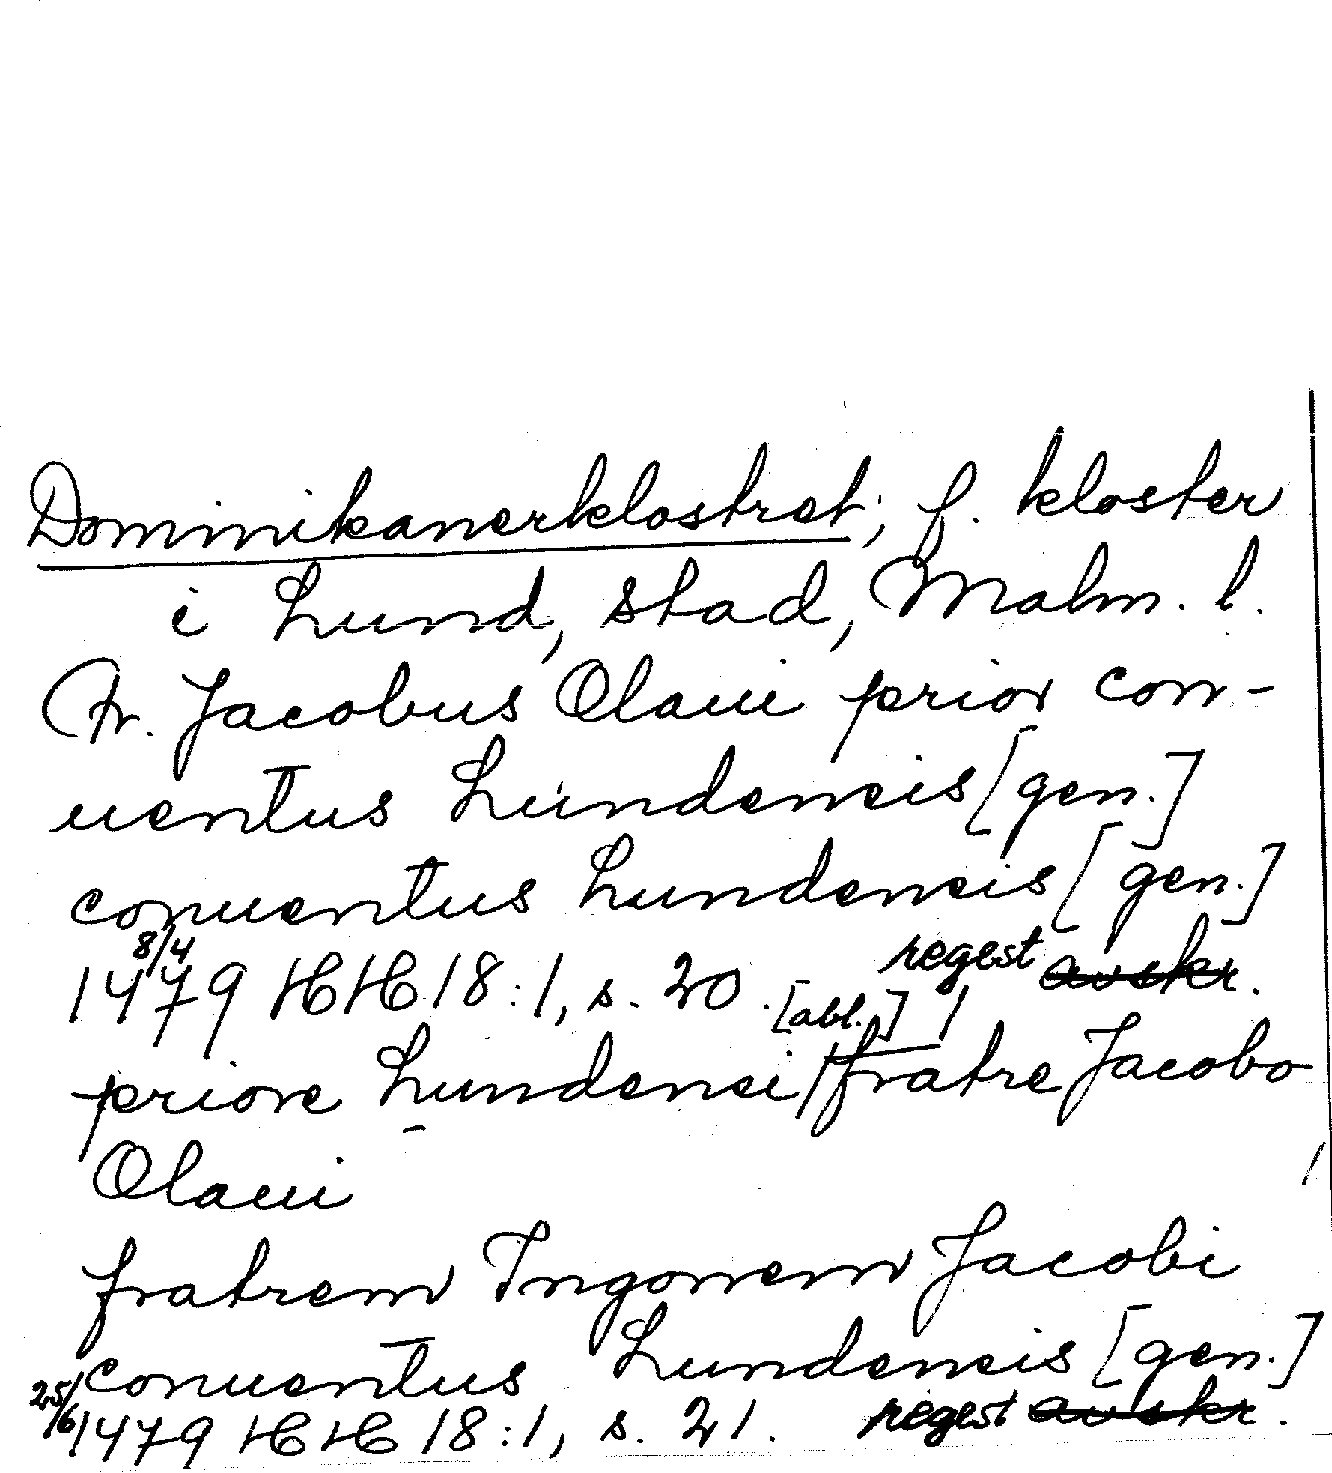 Dominikanerklostret, f. kloster
i Lund, stad, Malm. l.
Fr. Jacobus Olaui prior con-
uentus Lundensis [gen.]
conuentus Lundensis [gen.]
8/4 1479 HH 18:1, s. 20. regest avskr.
priore Lundensi [abl.] / fratre Jacobo
Olaui
fratrem Ingonem Jacobi
conuentus Lundensis [gen.]
25/6 1479 HH 18:1, s. 21. regest avskr.